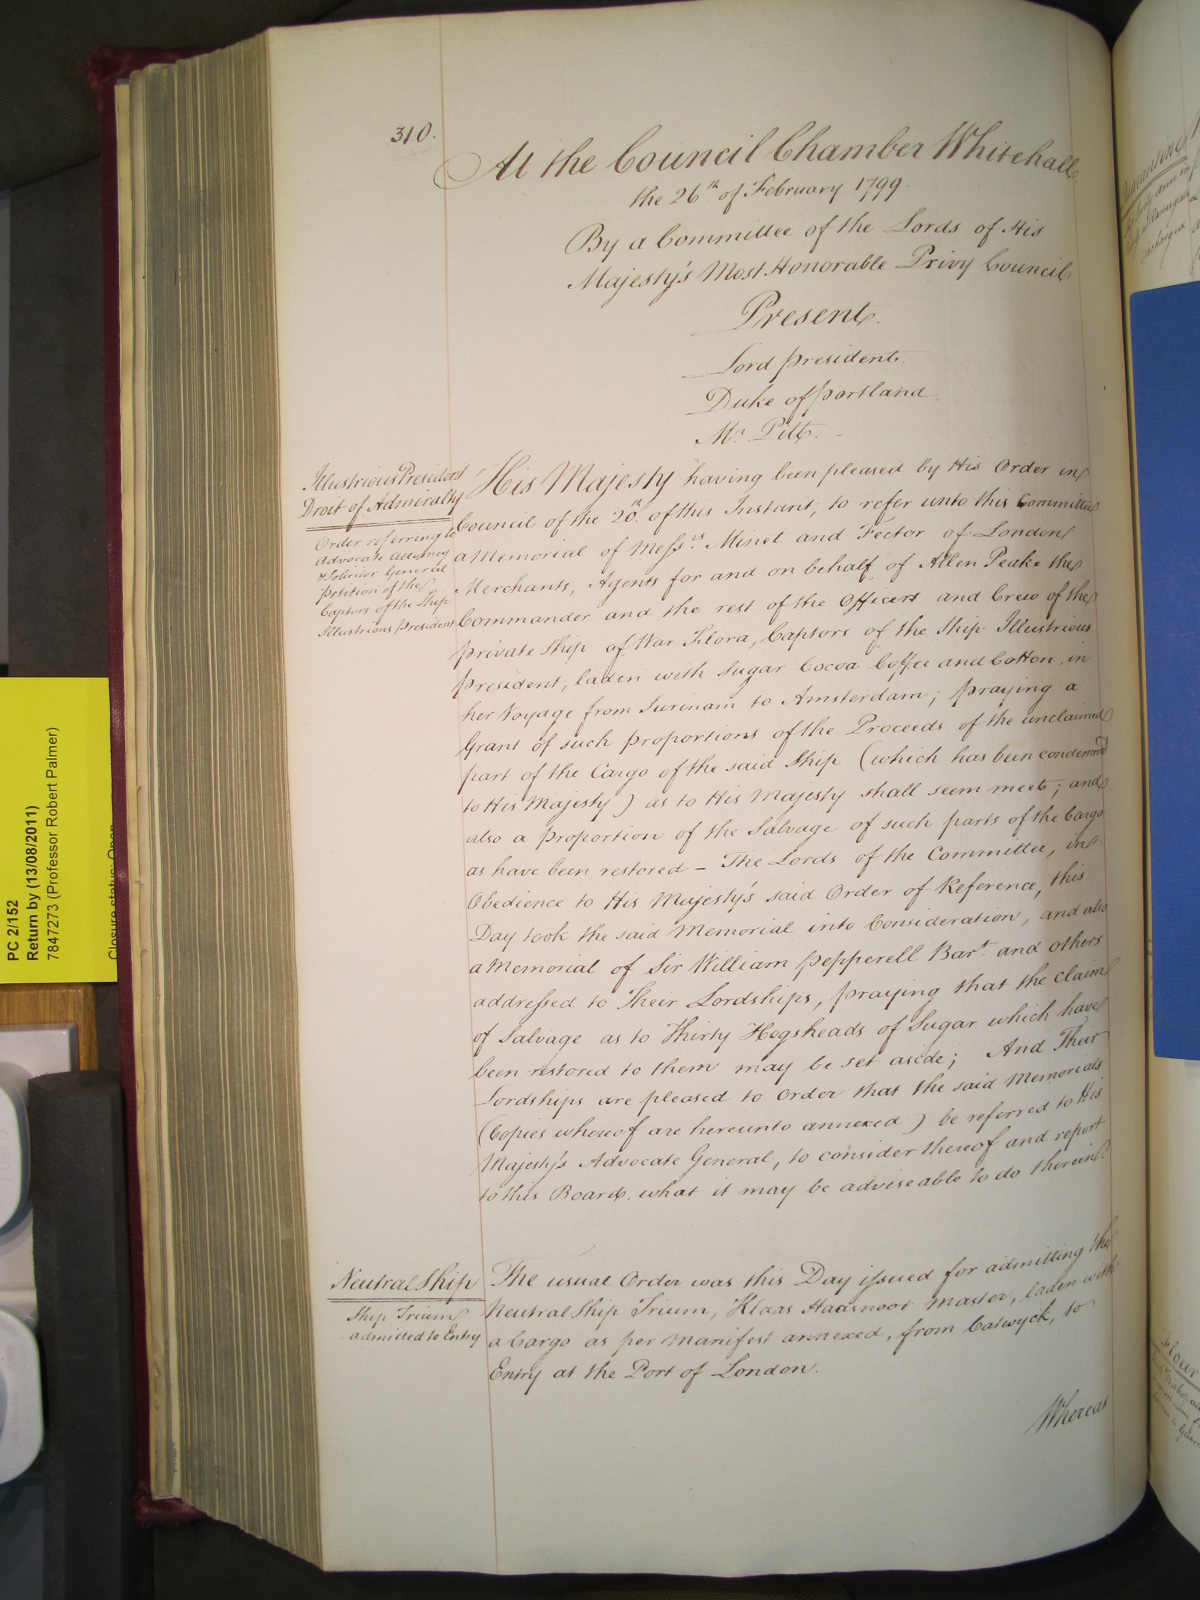 310.
At the Council Chamber Whitehall
the 26th of February 1799.
By a Committee of the Lords of His
Majesty's Most Honorable Privy Council
Present.
Lord President.
Duke of Portland.
Mr. Pitt.
Illustrious President
Droit of Admiralty
Order referring to
Advocate Attorney
& Solicitor General
Petition of the
Captors of the Ship
Illustrious President
His Majesty having been pleased by His Order in
Council of the 20th. of this Instant, to refer unto this Committee
a Memorial of Messrs. Minet and Fector of London
Merchants, Agents for and on behalf of Allen Peake the
Commander and the rest of the Officers and Crew of the
private Ship of War Flora, Captors of the Ship Illustrious
President, laden with Sugar Cocoa Coffee and Cotton in
her Voyage from Surinam to Amsterdam; praying a
Grant of such proportions of the Proceeds of the unclaimed
part of the Cargo of the said Ship (which has been condemned
to His Majesty) as to His Majesty shall seem meet; and
also a proportion of the Salvage of such parts of the Cargo
as have been restored - The Lords of the Committee, in
Obedience to His Majesty's said Order of Reference, this
Day took the said Memorial into Consideration, and also
a Memorial of Sir William Pepperell Bart. and others
addressed to Their Lordships, praying that the claim
of Salvage as to Thirty Hogsheads of Sugar which have
been restored to them may be set aside; And Their
Lordships are pleased to Order that the said Memorials
(Copies whereof are hereunto annexed) be referred to His
Majesty's Advocate General, to consider thereof and report
to this Board, what it may be adviseable to do therein.
Neutral Ship
Ship Trium
admitted to Entry
The usual Order was this Day issued for admitting the
Neutral Ship Trium, Klaas Haasnoot Master, laden with
a Cargo as per Manifest annexed, from Catwyck, to
Entry at the Port of London.
Whereas
PC 2/152
Return by (13/08/2011)
7847273 (Professor Robert Palmer)
Closure status: Open
discharged
Flour